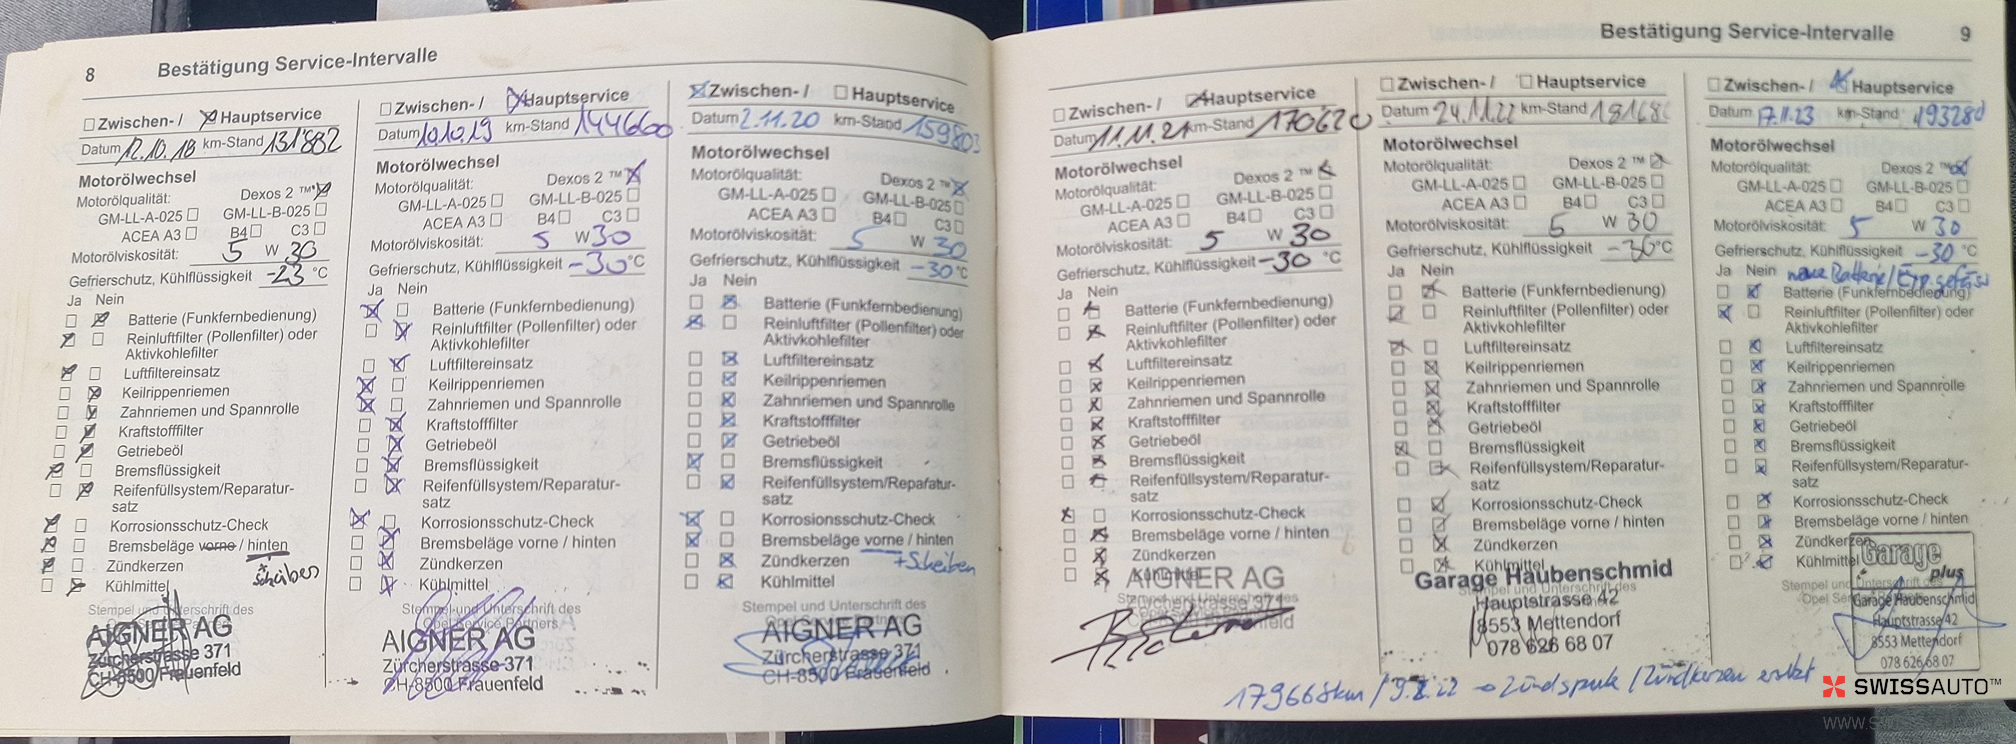 8 Bestätigung Service-Intervalle
Zwischen- / Hauptservice
Datum 12.10.18 km-Stand 131'882
Motorölwechsel
Motorölqualität: Dexos 2 ™
GM-LL-A-025 GM-LL-B-025
ACEA A3 B4 C3
Motorölviskosität: 5 W 30
Gefrierschutz, Kühlflüssigkeit -23 °C
Ja Nein
Batterie (Funkfernbedienung)
Reinluftfilter (Pollenfilter) oder
Aktivkohlefilter
Luftfiltereinsatz
Keilrippenriemen
Zahnriemen und Spannrolle
Kraftstofffilter
Getriebeöl
Bremsflüssigkeit
Reifenfüllsystem/Reparatur-
satz
Korrosionsschutz-Check
Bremsbeläge vorne / hinten
+ Scheiben
Zündkerzen
Kühlmittel
Stempel und Unterschrift des
AIGNER AG
Zürcherstrasse 371
CH-8500 Frauenfeld
Zwischen- / Hauptservice
Datum 10.10.19 km-Stand 144600
Motorölwechsel
Motorölqualität: Dexos 2 ™
GM-LL-A-025 GM-LL-B-025
ACEA A3 B4 C3
Motorölviskosität: 5 W 30
Gefrierschutz, Kühlflüssigkeit -30 °C
Ja Nein
Batterie (Funkfernbedienung)
Reinluftfilter (Pollenfilter) oder
Aktivkohlefilter
Luftfiltereinsatz
Keilrippenriemen
Zahnriemen und Spannrolle
Kraftstofffilter
Getriebeöl
Bremsflüssigkeit
Reifenfüllsystem/Reparatur-
satz
Korrosionsschutz-Check
Bremsbeläge vorne / hinten
Zündkerzen
Kühlmittel
Stempel und Unterschrift des
Opel Service Partners
AIGNER AG
Zürcherstrasse 371
CH-8500 Frauenfeld
Zwischen- / Hauptservice
Datum 2.11.20 km-Stand 159803
Motorölwechsel
Motorölqualität: Dexos 2 ™
GM-LL-A-025 GM-LL-B-025
ACEA A3 B4 C3
Motorölviskosität: 5 W 30
Gefrierschutz, Kühlflüssigkeit -30 °C
Ja Nein
Batterie (Funkfernbedienung)
Reinluftfilter (Pollenfilter) oder
Aktivkohlefilter
Luftfiltereinsatz
Keilrippenriemen
Zahnriemen und Spannrolle
Kraftstofffilter
Getriebeöl
Bremsflüssigkeit
Reifenfüllsystem/Reparatur-
satz
Korrosionsschutz-Check
Bremsbeläge vorne / hinten
Zündkerzen + Scheiben
Kühlmittel
Stempel und Unterschrift des
AIGNER AG
Zürcherstrasse 371
CH-8500 Frauenfeld
Bestätigung Service-Intervalle 9
Zwischen- / Hauptservice
Datum 11.11.21 km-Stand 170620
Motorölwechsel
Motorölqualität: Dexos 2 ™
GM-LL-A-025 GM-LL-B-025
ACEA A3 B4 C3
Motorölviskosität: 5 W 30
Gefrierschutz, Kühlflüssigkeit -30 °C
Ja Nein
Batterie (Funkfernbedienung)
Reinluftfilter (Pollenfilter) oder
Aktivkohlefilter
Luftfiltereinsatz
Keilrippenriemen
Zahnriemen und Spannrolle
Kraftstofffilter
Getriebeöl
Bremsflüssigkeit
Reifenfüllsystem/Reparatur-
satz
Korrosionsschutz-Check
Bremsbeläge vorne / hinten
Zündkerzen
Kühlmittel
AIGNER AG
Stempel und Unterschrift des
Zwischen- / Hauptservice
Datum 24.11.22 km-Stand
Motorölwechsel
Motorölqualität: Dexos 2 ™
GM-LL-A-025 GM-LL-B-025
ACEA A3 B4 C3
Motorölviskosität: 5 W 30
Gefrierschutz, Kühlflüssigkeit -30 °C
Ja Nein
Batterie (Funkfernbedienung)
Reinluftfilter (Pollenfilter) oder
Aktivkohlefilter
Luftfiltereinsatz
Keilrippenriemen
Zahnriemen und Spannrolle
Kraftstofffilter
Getriebeöl
Bremsflüssigkeit
Reifenfüllsystem/Reparatur-
satz
Korrosionsschutz-Check
Bremsbeläge vorne / hinten
Zündkerzen
Kühlmittel
Garage Haubenschmid
Hauptstrasse 42
8553 Mettendorf
078 626 68 07
Zwischen- / Hauptservice
Datum 17.11.23 km-Stand 193280
Motorölwechsel
Motorölqualität: Dexos 2 ™
GM-LL-A-025 GM-LL-B-025
ACEA A3 B4 C3
Motorölviskosität: 5 W 30
Gefrierschutz, Kühlflüssigkeit -30 °C
Ja Nein neue Batterie /
Batterie (Funkfernbedienung)
Reinluftfilter (Pollenfilter) oder
Aktivkohlefilter
Luftfiltereinsatz
Keilrippenriemen
Zahnriemen und Spannrolle
Kraftstofffilter
Getriebeöl
Bremsflüssigkeit
Reifenfüllsystem/Reparatur-
satz
Korrosionsschutz-Check
Bremsbeläge vorne / hinten
Zündkerzen
Kühlmittel
Garage
plus
Garage Haubenschmid
Hauptstrasse 42
8553 Mettendorf
078 626 68 07
179668km / 9.2.22 → Zündspule / Zündkerzen ersetzt
SWISSAUTO™